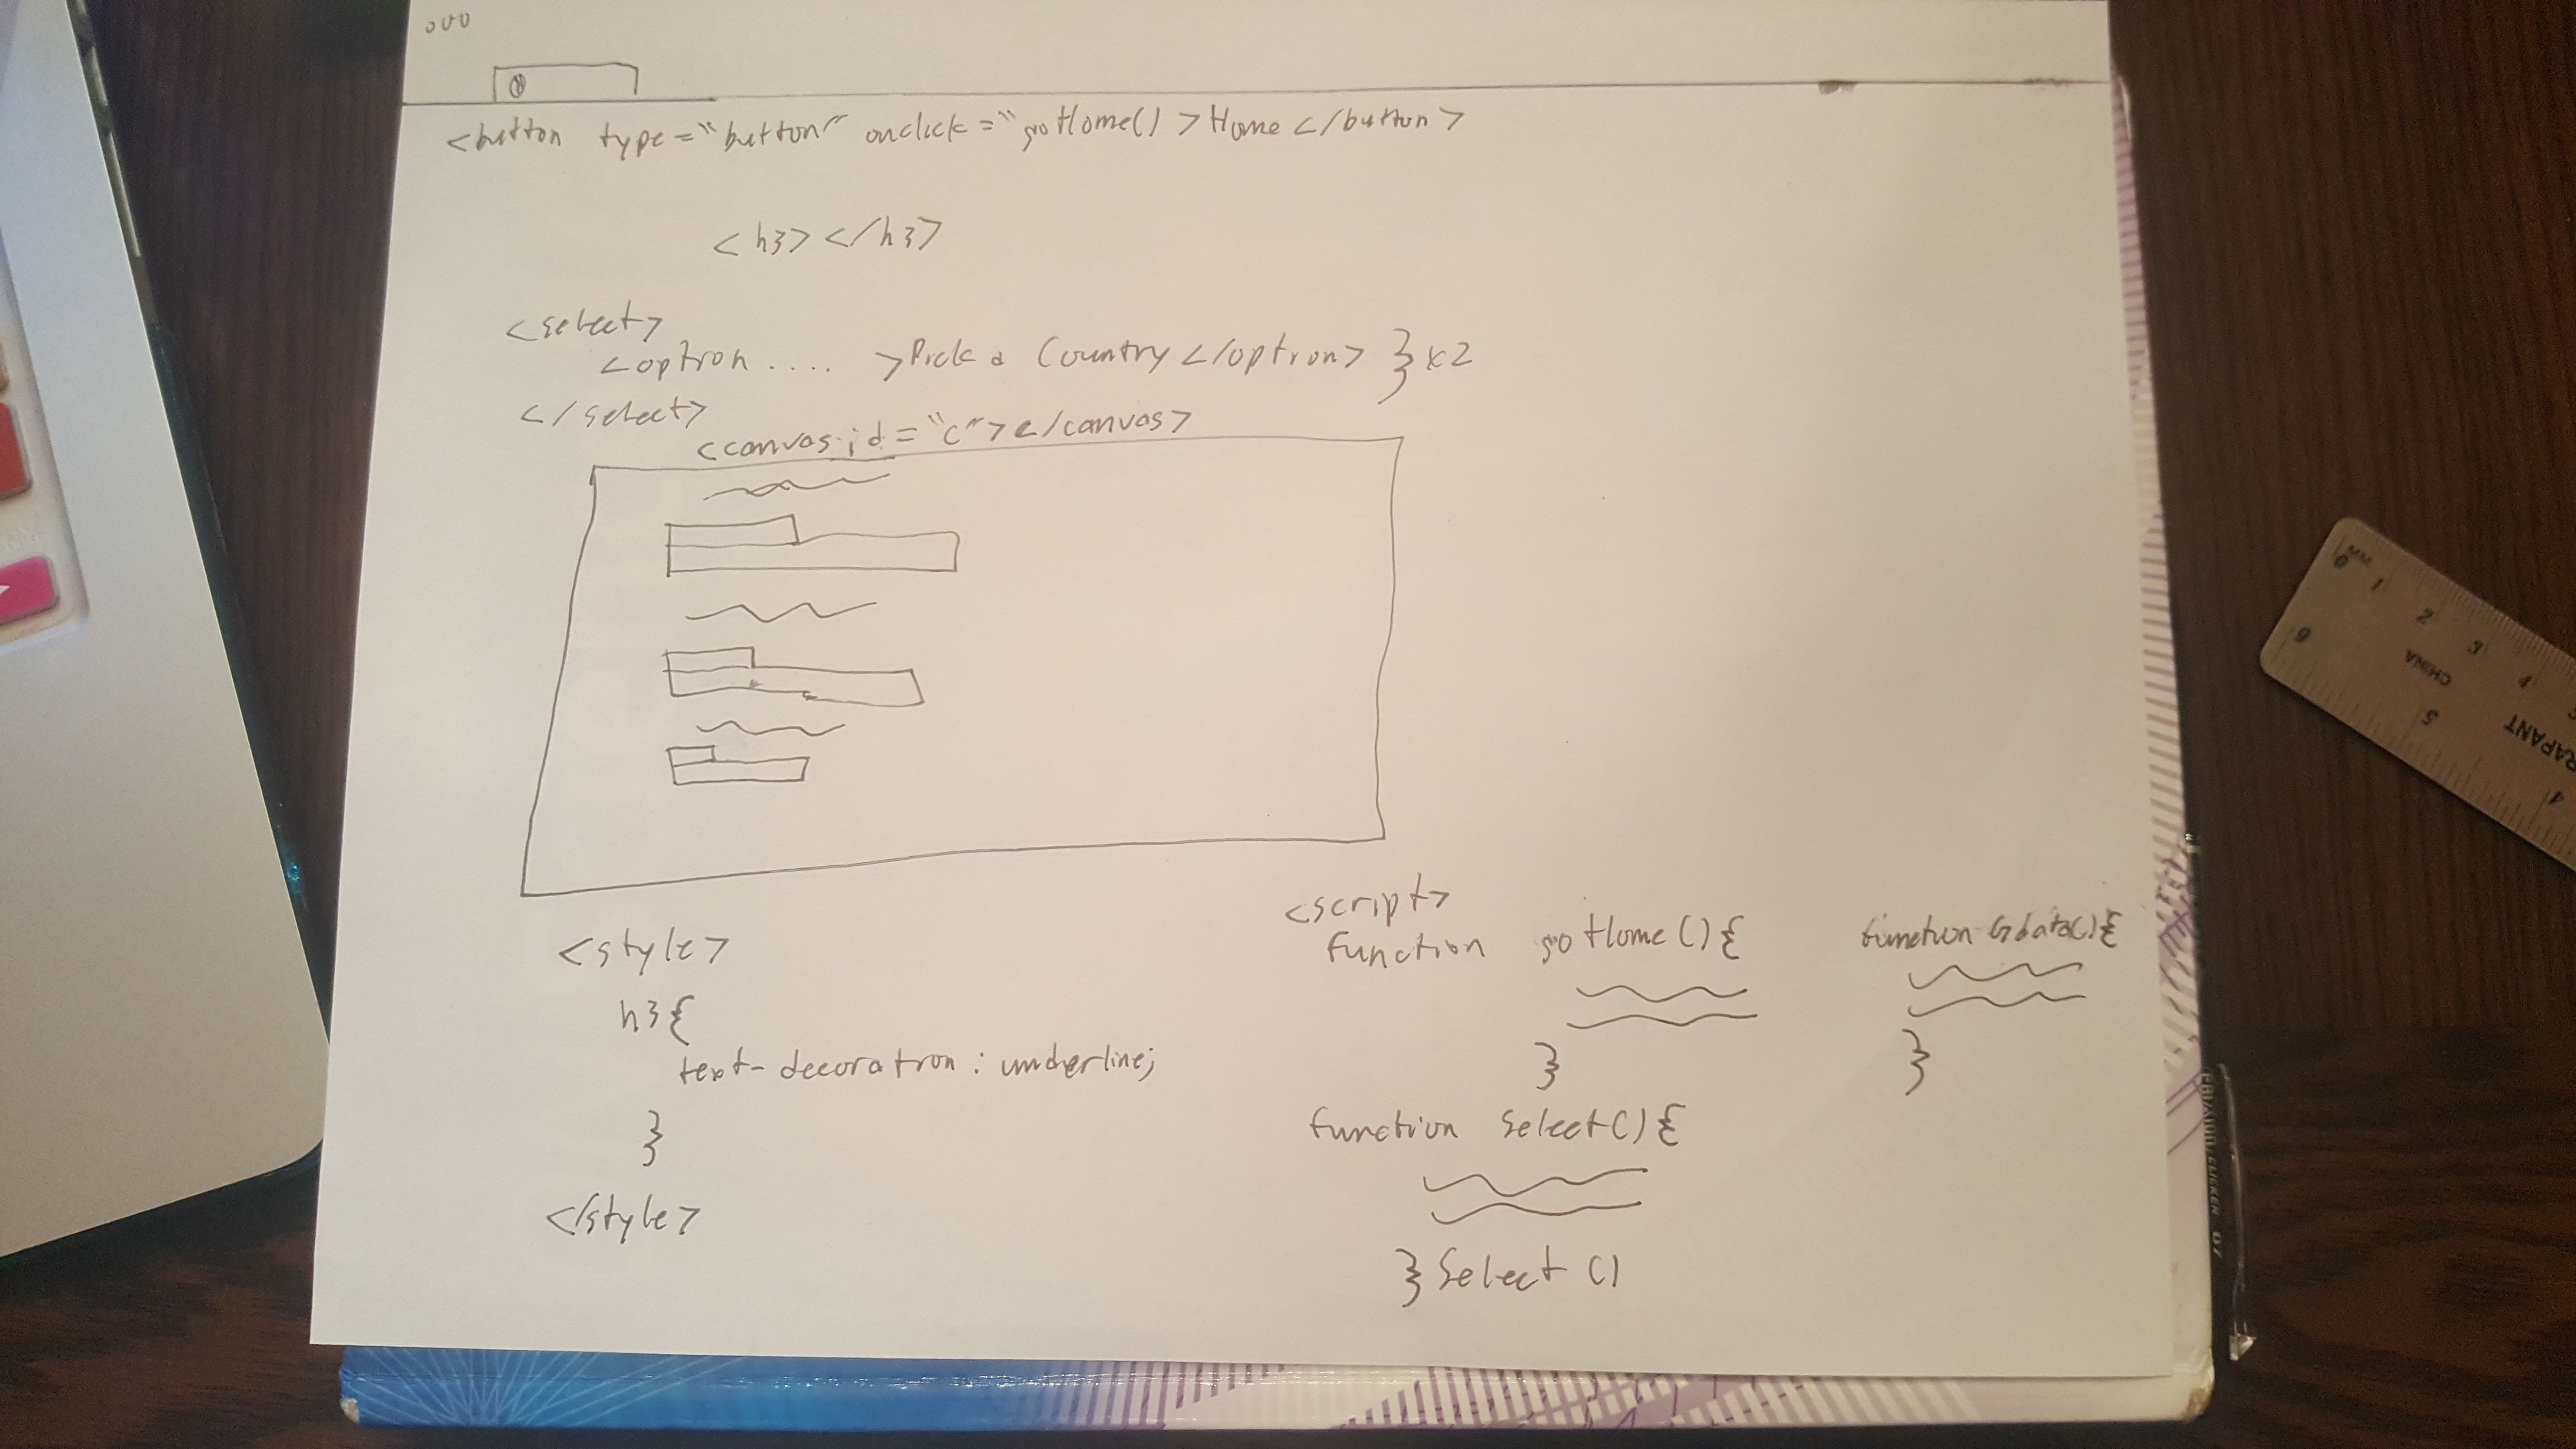 <button type="button" onclick="goHome()>Home</button>
<h3></h3>
<select>
<option .... >Pick a Country</option> } x2
</select>
<canvas id="c"></canvas>
<style>
h3{
text-decoration: underline;
}
</style>
<script>
function goHome(){
}
function Gdata(){
}
function Select(){
} Select()
MM
0 1 2 3 4
6 5 4
CHINA